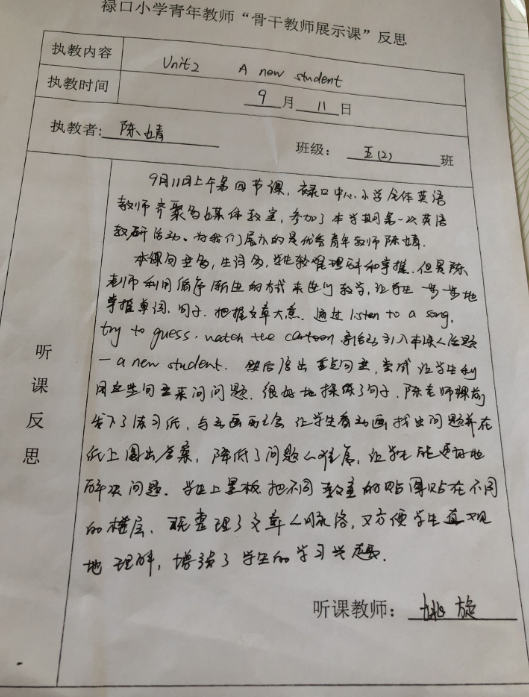 禄口小学青年教师“骨干教师展示课”反思
执教内容 Unit2 A new student
执教时间 9 月 11 日
执教者: 陈婧 班级: 五(2) 班
听课反思
9月11日上午第四节课,禄口中心小学全体英语
教师齐聚多媒体教室,参加了本学期第一次英语
教研活动。为我们展示的是优秀青年教师陈婧.
本课句型多,生词多,学生较难理解和掌握.但是陈
老师利用循序渐进的方式来进行教学,让学生一步一步地
掌握单词、句子.把握文章大意.通过listen to a song,
try to guess. watch the cartoon 等活动引入本课人话题
— a new student. 然后给出重点句型,尝试让学生利
用这些句型来问问题.很好地操练了句子.陈老师课前
发下了练习纸,与动画结合让学生看动画找出问题并在
纸上圈出答案,降低了问题的难度,让学生能更好地
解决问题.学生上黑板把不同教室的贴图贴在不同
的楼层.既整理了文章的脉络,又方便学生直观
地理解,增强了学生的学习兴趣.
听课教师: 姚旋